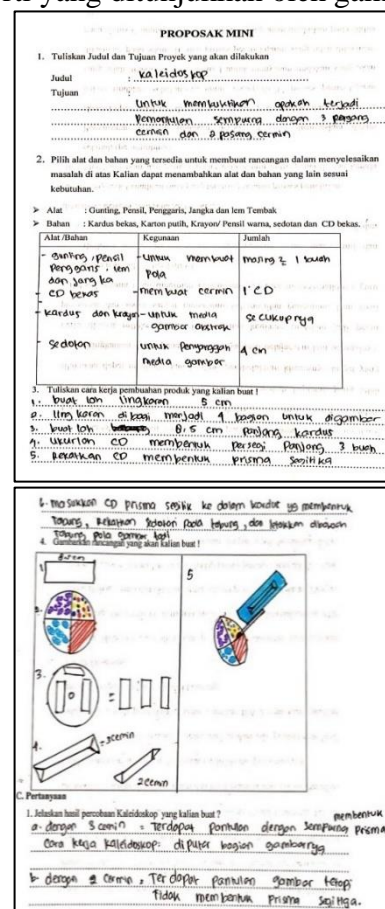 PROPOSAK MINI
1. Tuliskan Judul dan Tujuan Proyek yang akan dilakukan
Judul : kaleidoskop
Tujuan :
Untuk membuktikan apakah terjadi
Pemantulan sempurna dengan 3 pasang
cermin dan 2 pasang cermin
2. Pilih alat dan bahan yang tersedia untuk membuat rancangan dalam menyelesaikan
masalah di atas Kalian dapat menambahkan alat dan bahan yang lain sesuai
kebutuhan.
➢ Alat : Gunting, Pensil, Penggaris, Jangka dan lem Tembak
➢ Bahan : Kardus bekas, Karton putih, Krayon/ Pensil warna, sedotan dan CD bekas.
Alat /Bahan Kegunaan Jumlah
- gunting, pensil - untuk membuat masing 2 1 buah
penggaris, lem Pola
dan jangka
- CD bekas - membuat cermin 1 CD
- kardus dan krayon - untuk media secukupnya
gambar abstrak
- Sedotan untuk penyanggah 4 cm
media gambar
3. Tuliskan cara kerja pembuahan produk yang kalian buat !
1. buat lah lingkaran 5 cm
2. lingkaran di bagi menjadi 4 bagian untuk digambar
3. buat lah 8,5 cm panjang kardus
4. Ukurlah CD membentuk persegi panjang 3 buah
5. Rekatkan CD membentuk prisma segitiga
6. masukkan CD prisma segitiga ke dalam kardus yg membentuk
tabung, Rekatkan sedotan pada tabung, dan letakkan dibawah
tabung pola gambar tadi
4. Gambarkan rancangan yang akan kalian buat !
1. 8,5 cm
2.
3.
4. = 3 cermin
2 cermin
5
C. Pertanyaan
1. Jelaskan hasil percobaan Kaleidoskop yang kalian buat ?
a. dengan 3 cermin = Terdapat pantulan dengan sempurna membentuk prisma
cara kerja kaleidoskop: di putar bagian gambarnya
b. dengan 2 cermin = Terdapat pantulan gambar tetapi
tidak membentuk Prisma segitiga.